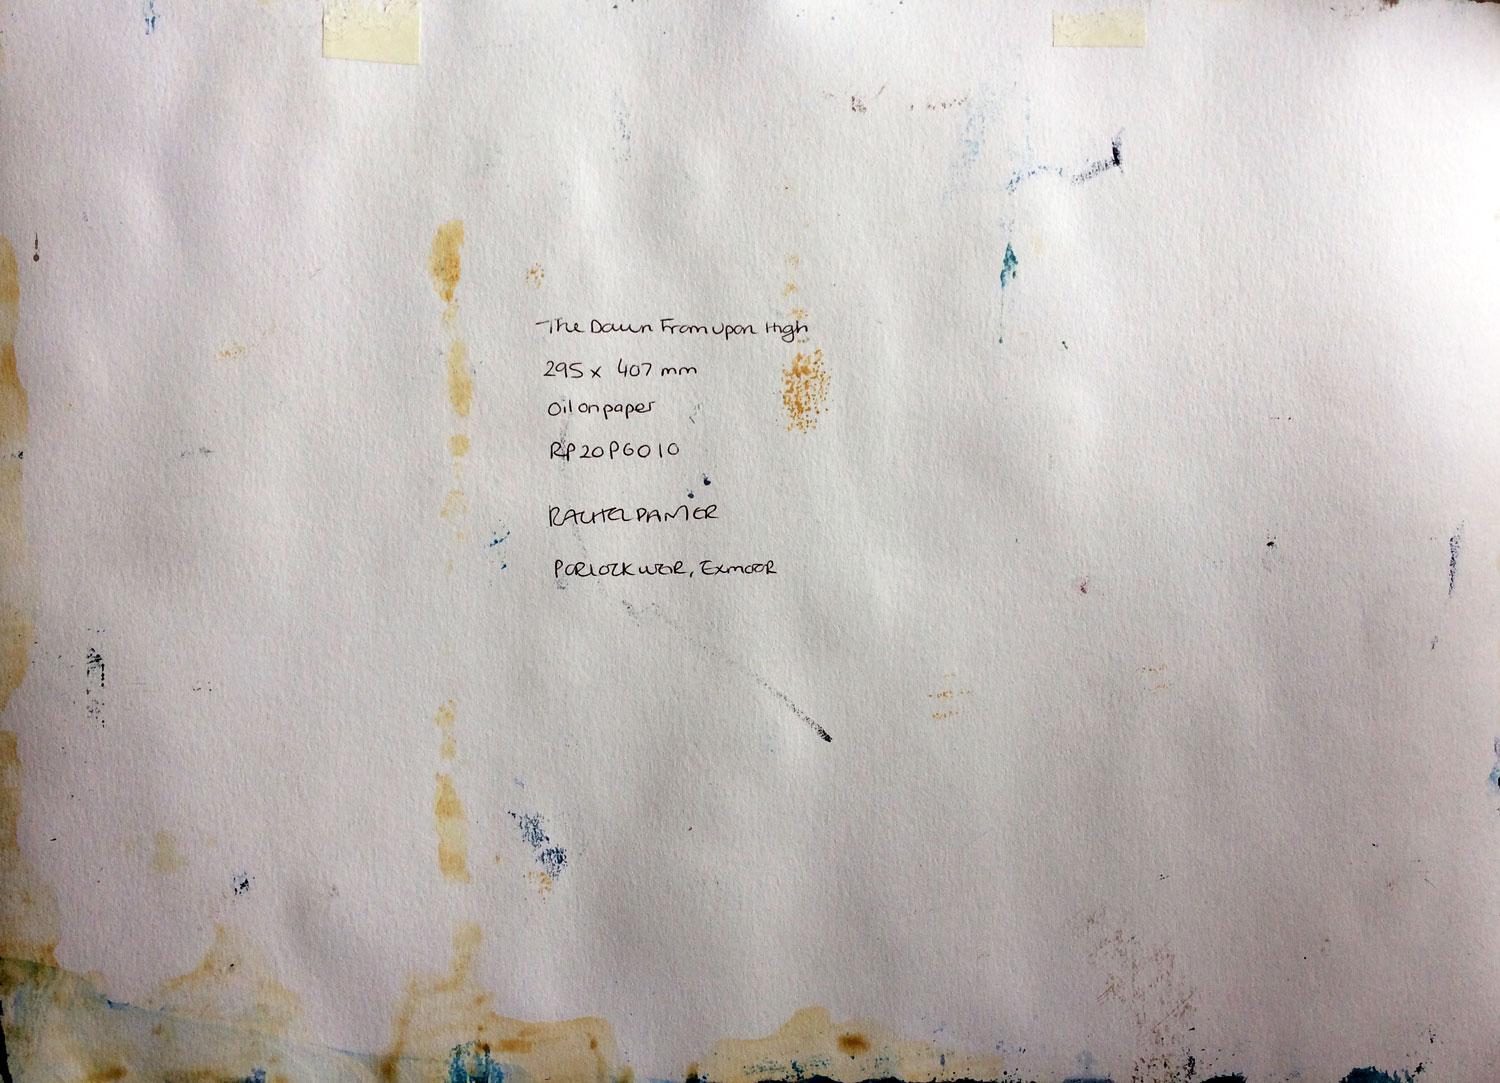 The Dawn From Upon High
295 x 407 mm
Oil on paper
RP20PG010
RACHEL PAINTER
PORLOCK WEIR, EXMOOR